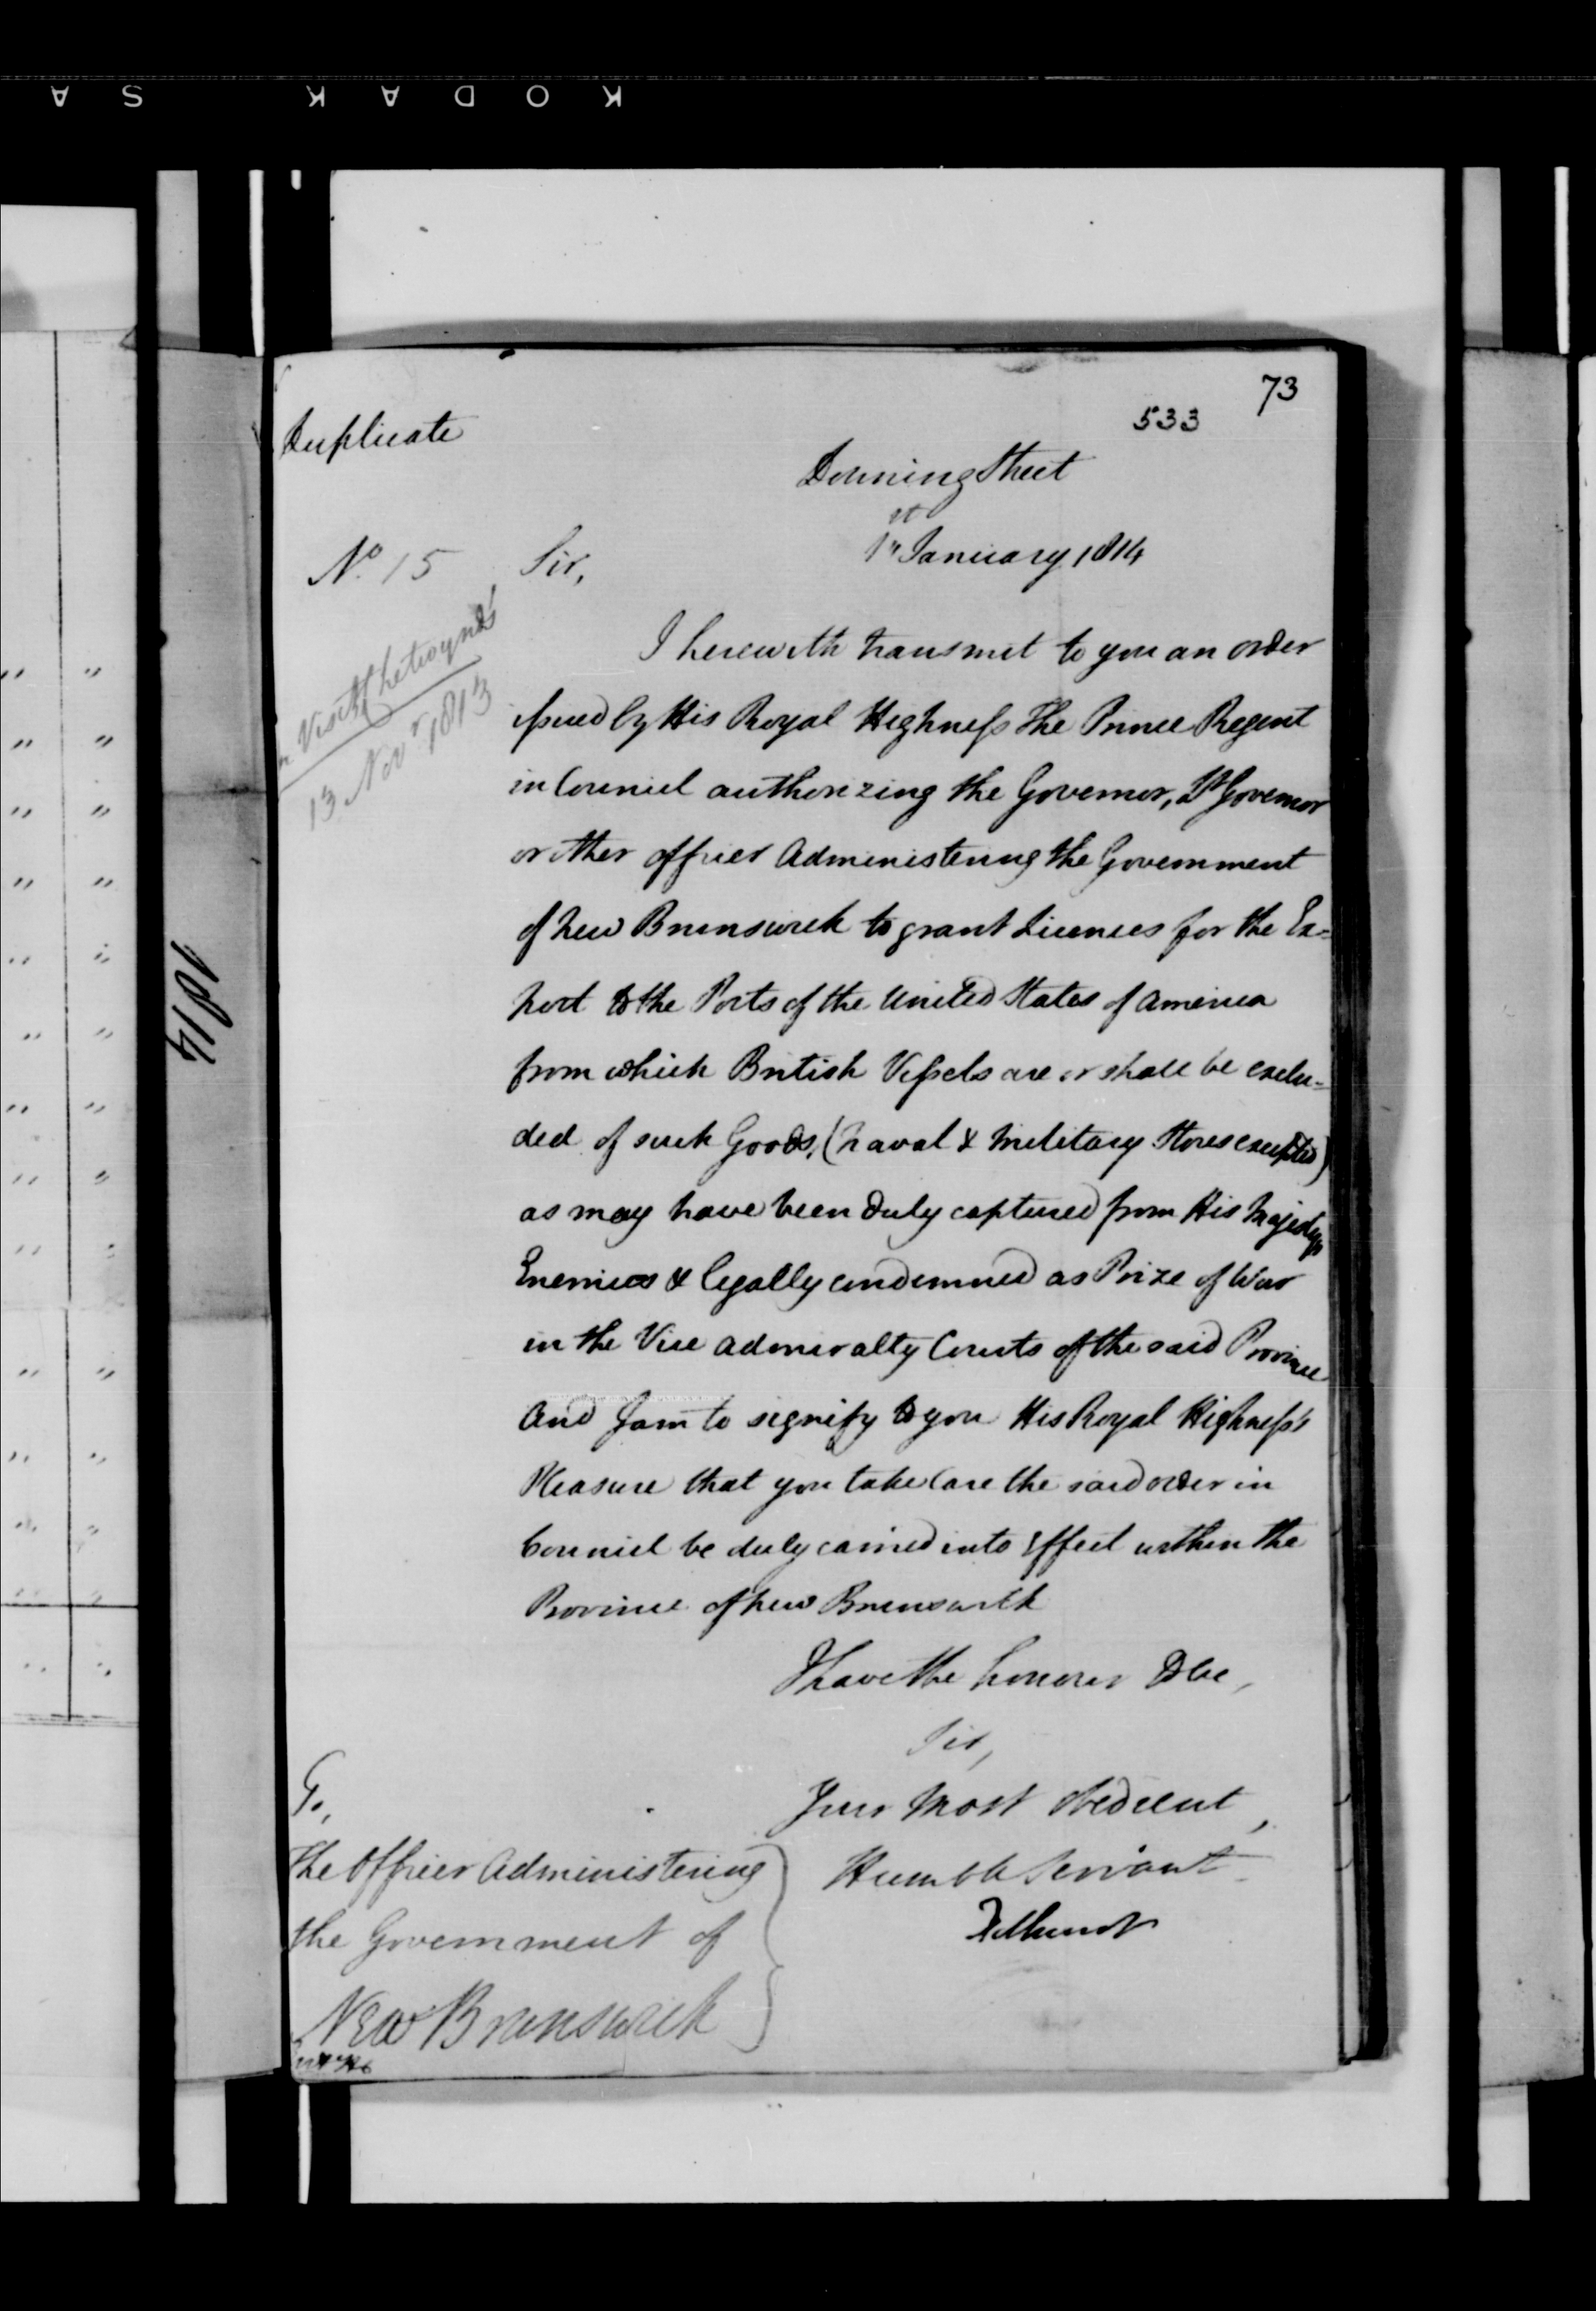 KODAK SA
73
533
Duplicate
Downing Street
1st January 1814
No. 15
Sir,
Viset Chetwynd's
13 Novr 1813
I herewith transmit to you an order
issued by His Royal Highness The Prince Regent
in Council authorizing the Governor, Lt Governor
or other officer Administering the Government
of New Brunswick to grant Licences for the Ex=
port to the Ports of the United States of America
from which British Vessels are or shall be exclu=
ded of such Goods, (Naval & Military Stores excepted)
as may have been duly captured from His Majestys
Enemies & legally condemned as Prize of War
in the Vice Admiralty Courts of the said Province
And I am to signify to you His Royal Highness's
Pleasure that you take Care the said order in
Council be duly carried into Effect within the
Province of New Brunswick
I have the honour to be,
Sir,
Your Most Obedient,
Humble Servant
Bathurst
To,
The Officer Administering
the Government of
New Brunswick
1814